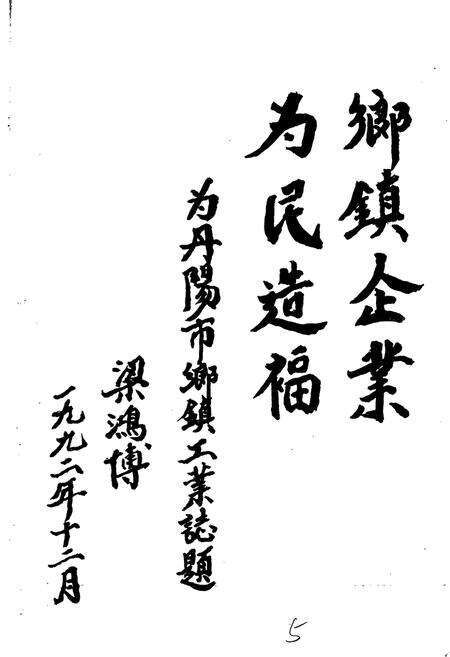 鄉鎮企業
为民造福
为丹陽市鄉鎮工業誌題
梁鴻博
一九九二年十二月
5